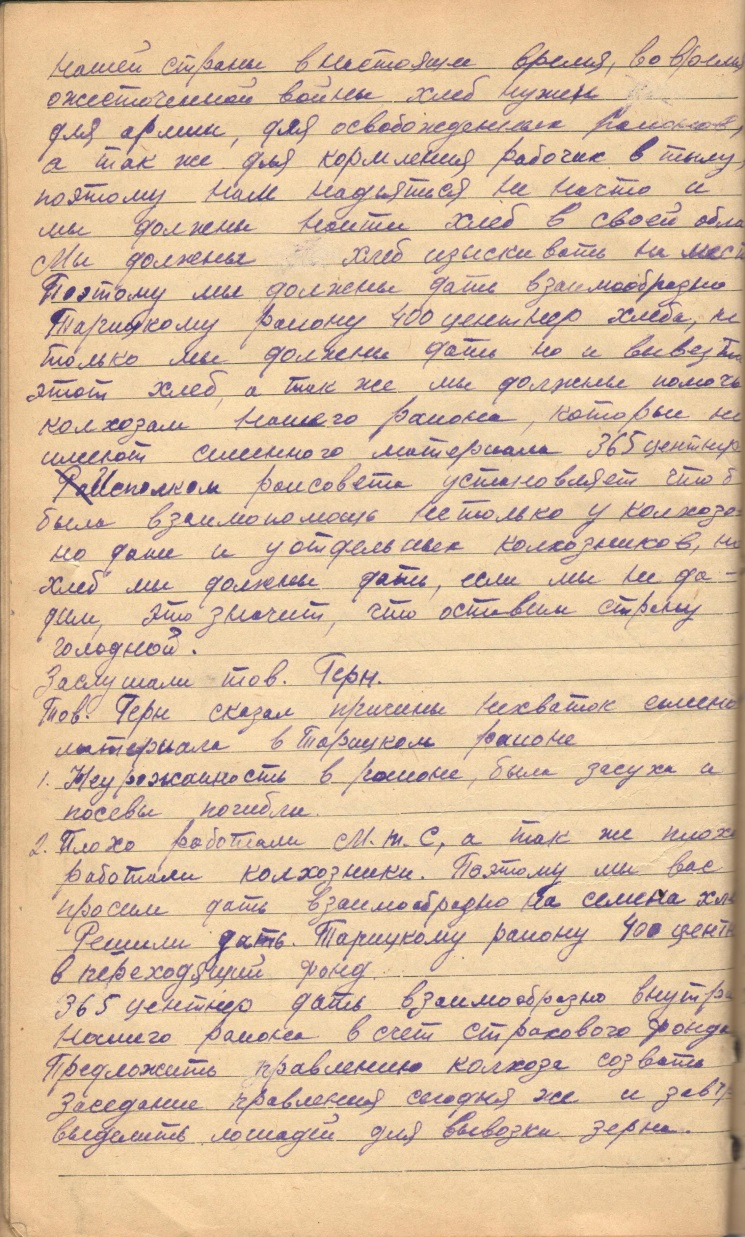 нашей страны в настоящи время, во время
ожесточенной войны хлеб нужен
для армии, для освобожденных районов,
а так же для кормления рабочих в тылу,
поэтому нам надеяться не начто и
мы должны найти хлеб в своей обла
Мы должены хлеб изыскивать на мест
Поэтому мы должены дать взаимообразно
Тарицкому району 400 центнер хлеба, не
только мы должени дать но и вывезти
этот хлеб, а так же мы должены помочь
колхозам нашего района, которые не
имеют семенного материала 365 центнер
Исполком райсовета установляет чтоб
была взаимопомощь не только у колхозов
но даже и у отдельных колхозников, но
хлеб мы должены дать, если мы не да-
дим, это значит, что оставим страну
голодной.
Заслушали тов. Герн.
Тов. Герн сказал причины нехваток семено
материала в Тарицком районе
1. Неурожайность в районе, была засуха и
посевы погибли.
2. Плохо работали М.т.С, а так же плохо
работали колхозники. Поэтому ми вас
просим дать взаимообразно на семена хле
Решили дать. Тарицкому району 400 центн
в переходящий фонд.
365 центнер дать взаимообразно внутри
нашего района в счет страхового фонда
Предложить правлению колхоза созвать
заседание правления сегодня же и завтр
выделить лошадей для вывозки зерна.